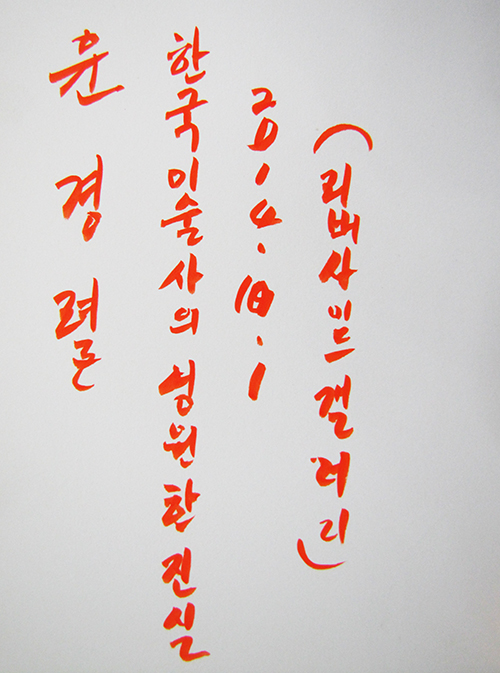 윤경렬
한국미술사의 영원한 진실
2014.10.1
(리버사이드 갤러리)